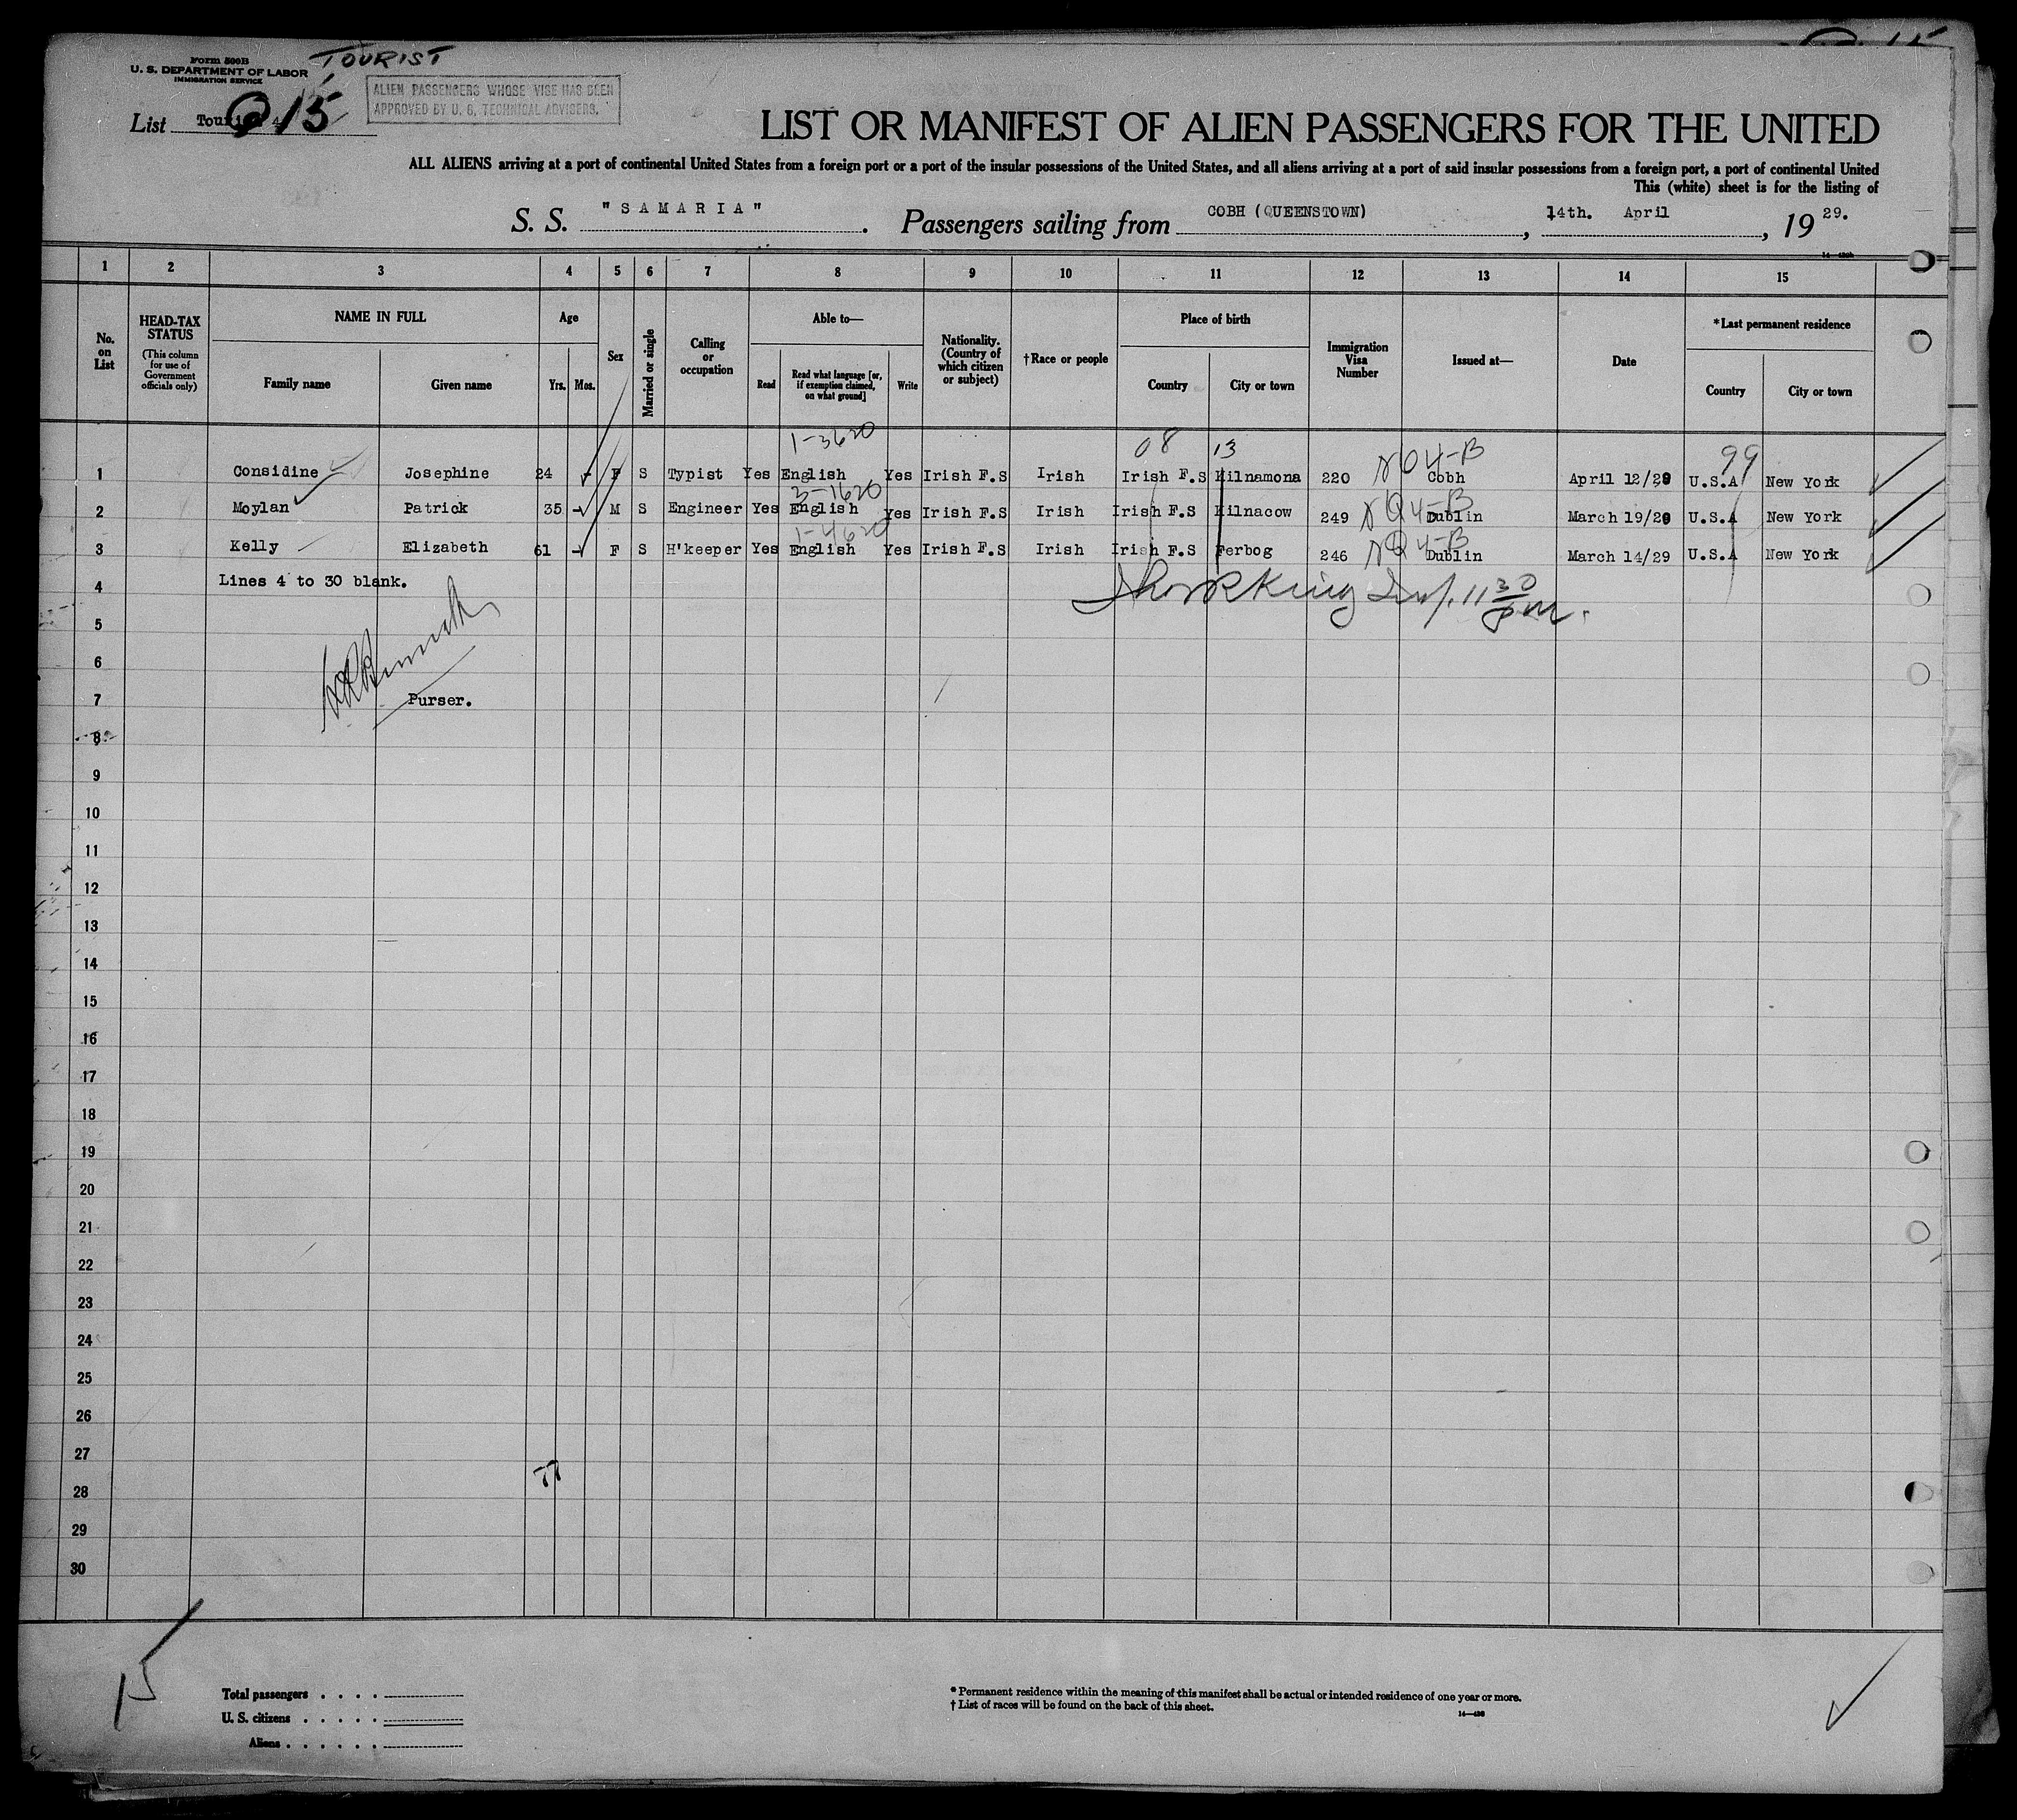 Form 500B
U. S. DEPARTMENT OF LABOR
IMMIGRATION SERVICE
TOURIST
ALIEN PASSENGERS WHOSE VISE HAS BEEN
APPROVED BY U. S. TECHNICAL ADVISERS.
List 15
LIST OR MANIFEST OF ALIEN PASSENGERS FOR THE UNITED
ALL ALIENS arriving at a port of continental United States from a foreign port or a port of the insular possessions of the United States, and all aliens arriving at a port of said insular possessions from a foreign port, a port of continental United
This (white) sheet is for the listing of
S. S. "SAMARIA". Passengers sailing from COBH (QUEENSTOWN), 14th. April, 1929.
1 2 3 4 5 6 7 8 9 10 11 12 13 14 15
No. on List
HEAD-TAX STATUS (This column for use of Government officials only)
NAME IN FULL Family name Given name
Age Yrs. Mos.
Sex
Married or single
Calling or occupation
Able to— Read Read what language [or, if exemption claimed, on what ground] Write
Nationality. (Country of which citizen or subject)
†Race or people
Place of birth Country City or town
Immigration Visa Number
Issued at—
Date
*Last permanent residence Country City or town
1-3620 08 13 NQ4-B 99
1 Considine Josephine 24 - F S Typist Yes English Yes Irish F.S Irish Irish F.S Kilnamona 220 Cobh April 12/29 U.S.A New York
3-1620 NQ4-B
2 Moylan Patrick 35 - M S Engineer Yes English Yes Irish F.S Irish Irish F.S Kilnacow 249 Dublin March 19/29 U.S.A New York
1-4620 NQ4-B
3 Kelly Elizabeth 61 - F S H'keeper Yes English Yes Irish F.S Irish Irish F.S Ferbog 246 Dublin March 14/29 U.S.A New York
4 Lines 4 to 30 blank.
5
6
7 Purser.
8
9
10
11
12
13
14
15
16
17
18
19
20
21
22
23
24
25
26
27
28
29
30
15
Total passengers . . . .
U. S. citizens . . . . .
Aliens . . . . . .
* Permanent residence within the meaning of this manifest shall be actual or intended residence of one year or more.
† List of races will be found on the back of this sheet.